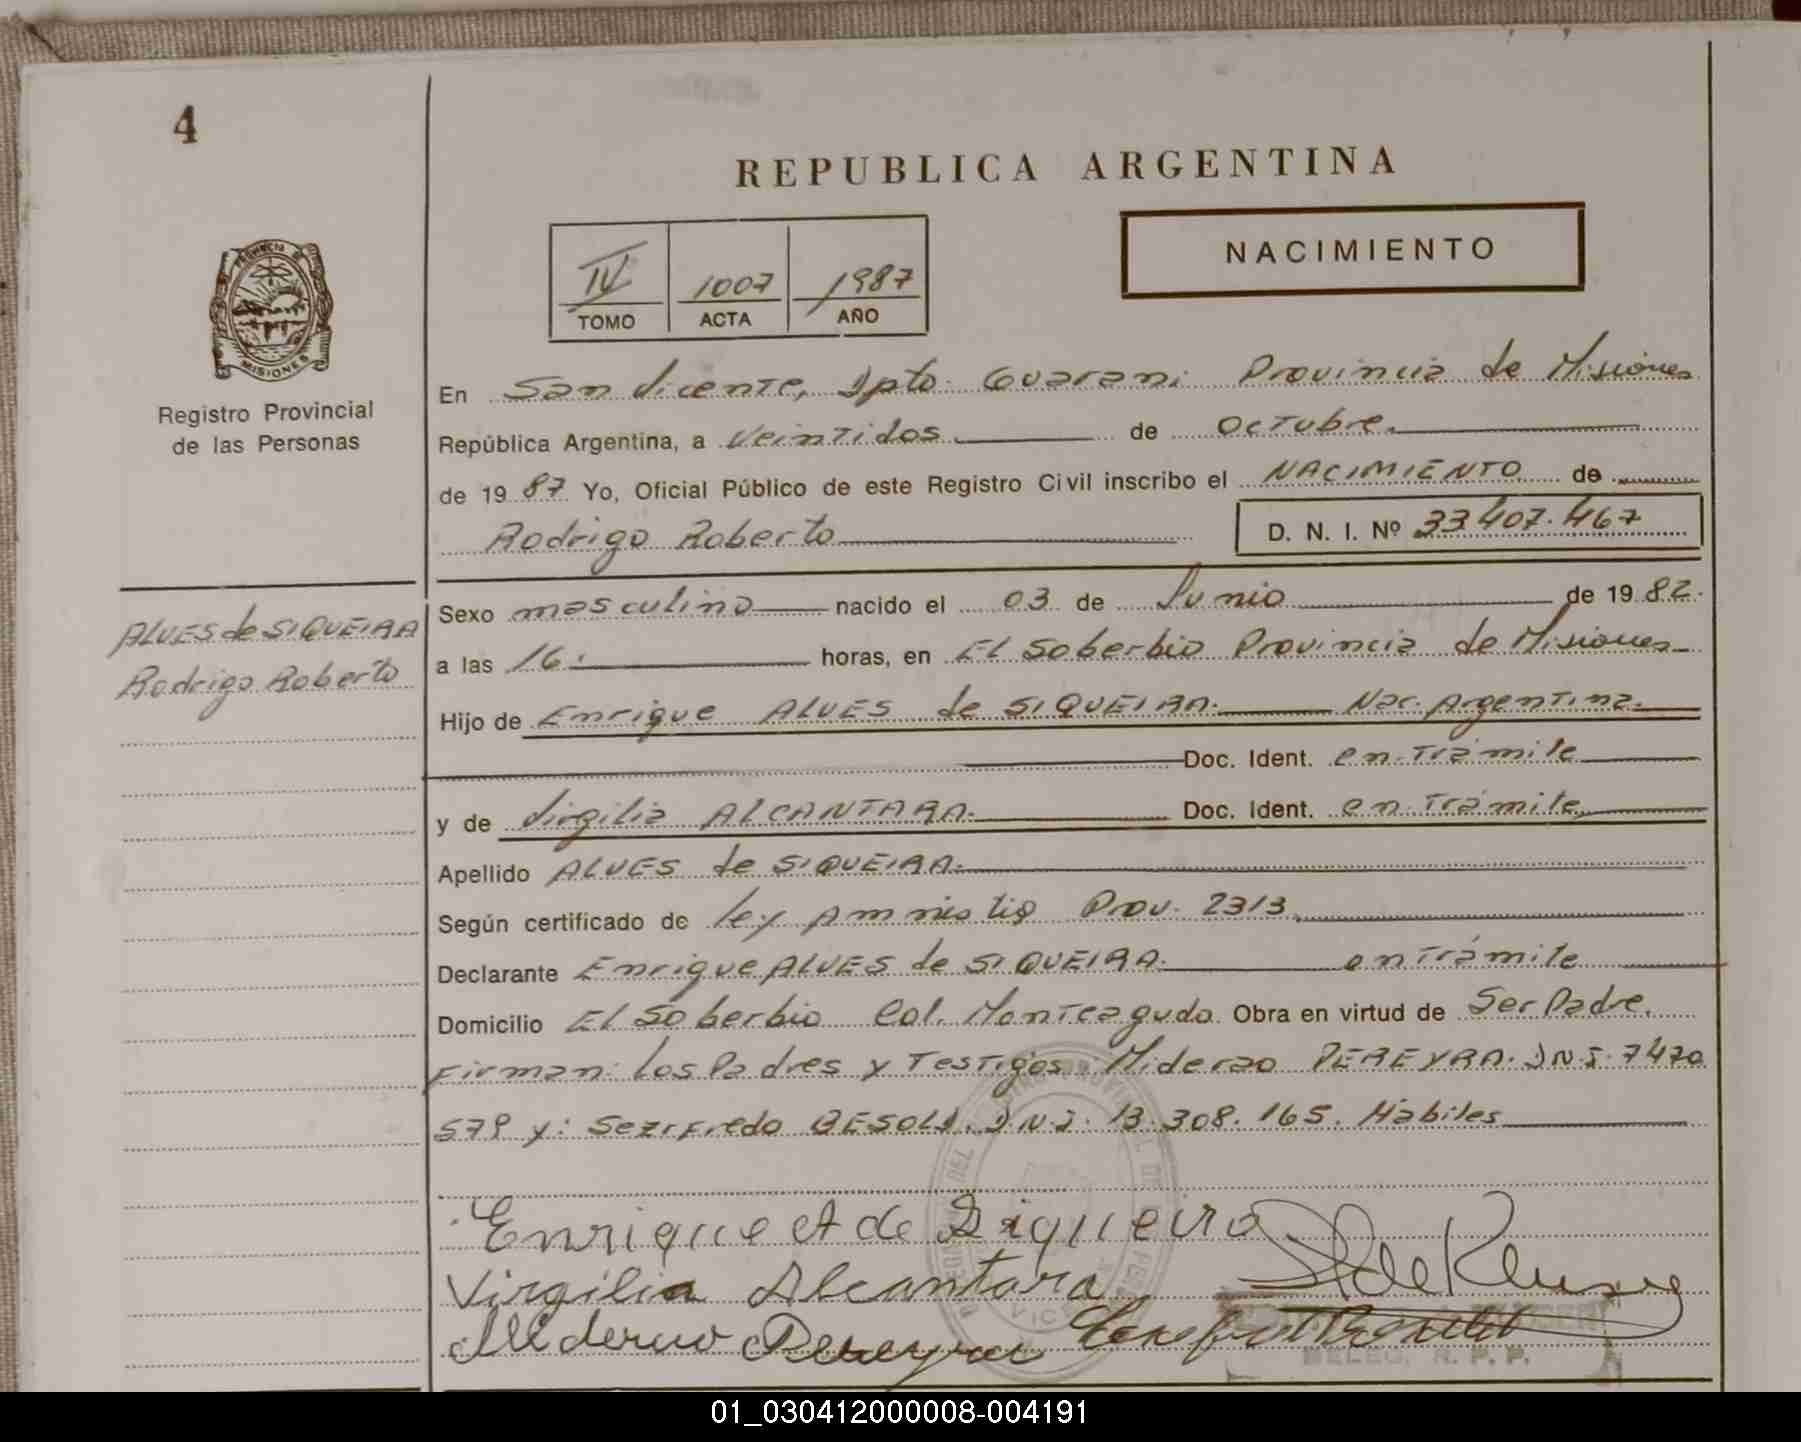 4
REPUBLICA ARGENTINA
NACIMIENTO
IV 1007 1987
TOMO ACTA AÑO
PROVINCIA DE
MISIONES
Registro Provincial
de las Personas
En San Vicente, Dpto. Guarani Provincia de Misiones
República Argentina, a Veintidos de Octubre.
de 19 87 Yo, Oficial Público de este Registro Civil inscribo el NACIMIENTO de
Rodrigo Roberto D. N. I. Nº 33.407.467
ALVES de SIQUEIRA
Rodrigo Roberto
Sexo masculino nacido el 03 de Junio de 19 82.
a las 16. horas, en El Soberbio Provincia de Misiones
Hijo de Enrique ALVES de SIQUEIRA. Nac. Argentina.
Doc. Ident. en trámite
y de Virgilia ALCANTARA. Doc. Ident. en trámite
Apellido ALVES de SIQUEIRA.
Según certificado de ley Amnistia Prov. 2313
Declarante Enrique ALVES de SIQUEIRA. en trámite
Domicilio El Soberbio Col. Monteagudo Obra en virtud de Ser Padre.
Firman: los Padres y Testigos PEREYRA. D.N.I. 7470
579 y: D.N.I. 13.308.165. Hábiles
Enrique A de Siqueira
Virgilia Alcantara
Pereyra
01_030412000008-004191